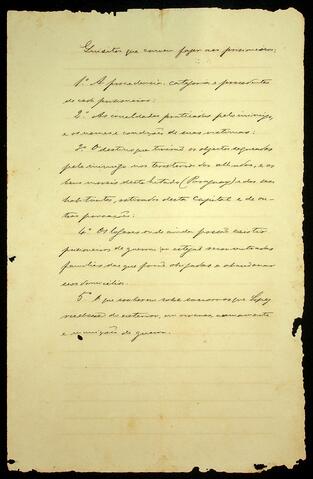 Quesitos que convem fazer aos prisioneiros:
1.º A procedencia, categoria e precedentes
de cada prisioneiro;
2.º As crueldades praticadas pelo inimigo,
e os nomes e condições de suas victimas;
3.º O destino que tiverão os objectos
pelo inimigo nos territorios dos alliados, e os
bens moveis deste Estado (Paraguay) e dos seus
habitantes, retirados desta Capital e de ou-
tras povoações;
4.º Os lugares onde ainda possão existir
prisioneiros de guerra, ou estejão
familias das que forão obrigadas a abandonar
seos domicilios.
5.º A que souberem sobre recursos que Lopez
recebesse do exterior, em armamento
e munições de guerra.